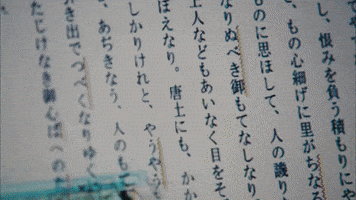 し、恨みを負う積もりにや
、もの心細げに里がちなる
ものに思ほして、人の譏り
なりぬべき御もてなしなり
土人などもあいなく目をそ
ぼえなり。唐土にも、かか
しかりけれと、やうやう
、あぢきなう、人のもて
き出でつべくなりゆく
たじけなき御心ばへのた